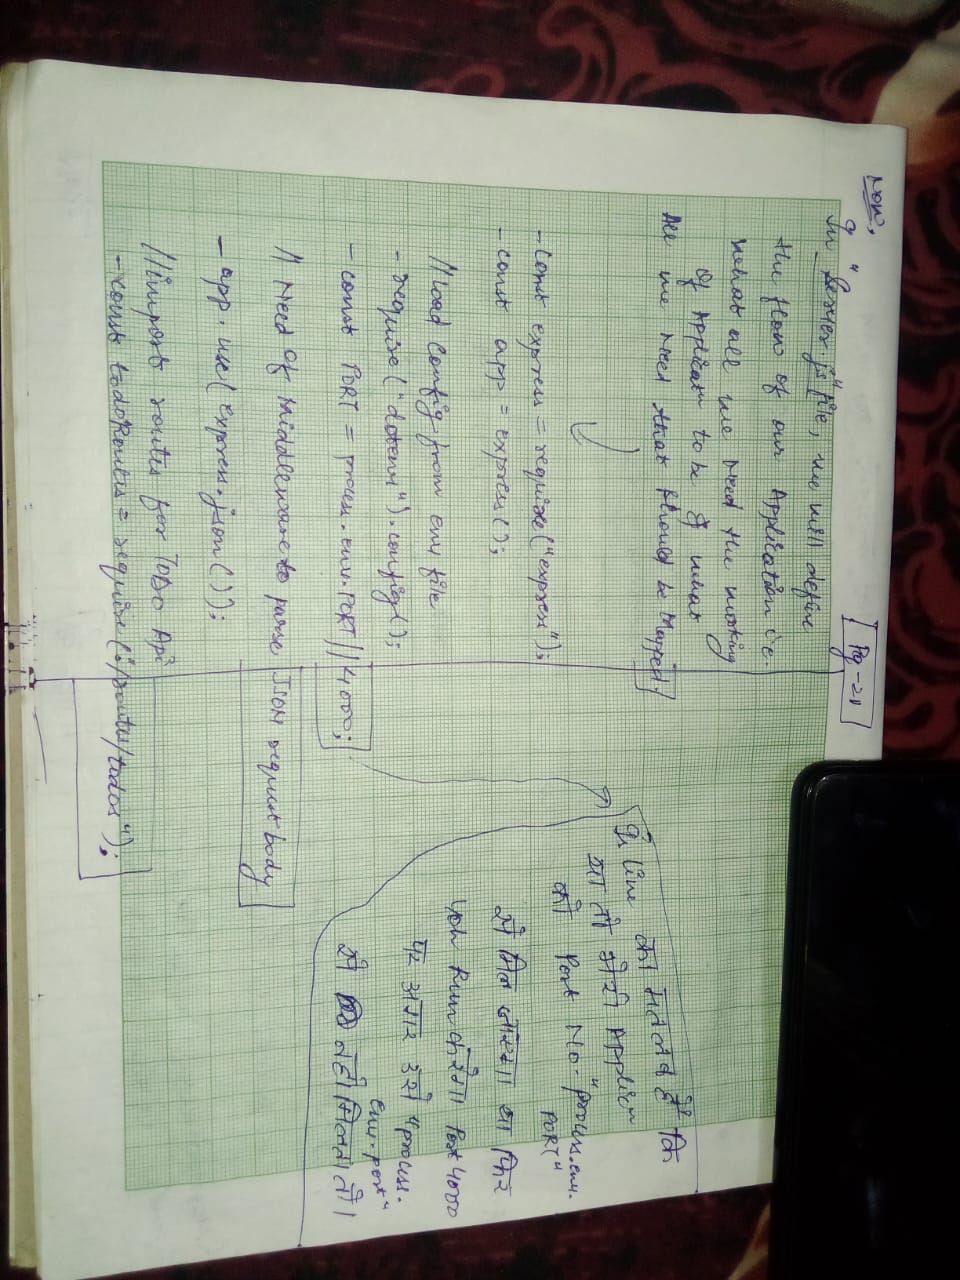 [Pg-21]
Now,
In "Server.js" file, we will define
the flow of our Application i.e.
what all we need the working
of Applicatn to be & what
All we need that should be Mapped.
- Const express = require("express");
- const app = express();
// Load Config from env file
- require("dotenv").config();
- const PORT = process.env.PORT || 4000;
// Need of Middleware to parse JSON request body
- app.use(express.json());
// import routes for TODO Api
- const todoRoutes = require("./routes/todos");
इस line का मतलब है कि
या तो मेरी Applicn
को Port No- "process.env.
PORT"
से मिल जायेगा या फिर
यह Run करेगा Port 4000
पर अगर उसे "process.
env.port"
से नहीं मिलता तो।